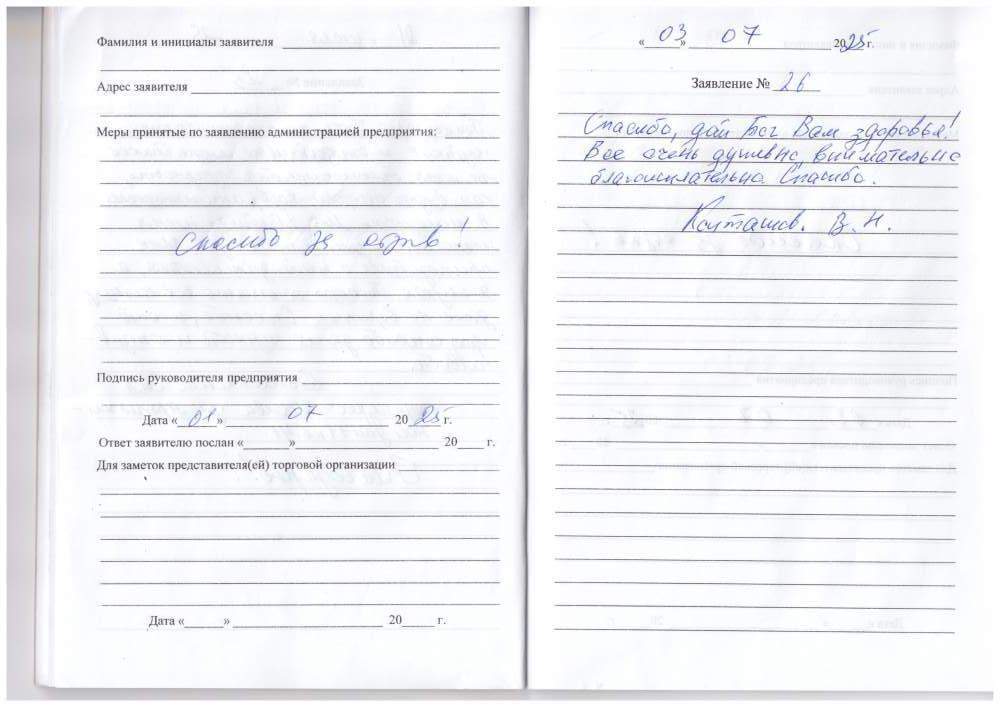 Фамилия и инициалы заявителя
Адрес заявителя
Меры принятые по заявлению администрацией предприятия:
Спасибо за отзыв!
Подпись руководителя предприятия
Дата «01» 07 2025 г.
Ответ заявителю послан «______» ______ 20____ г.
Для заметок представителя(ей) торговой организации
Дата «______» ______ 20_____ г.
«03» 07 2025 г.
Заявление № 26
Спасибо, дай Бог Вам здоровья!
Все очень душевно, внимательно
благожелательно. Спасибо.
В. Н.